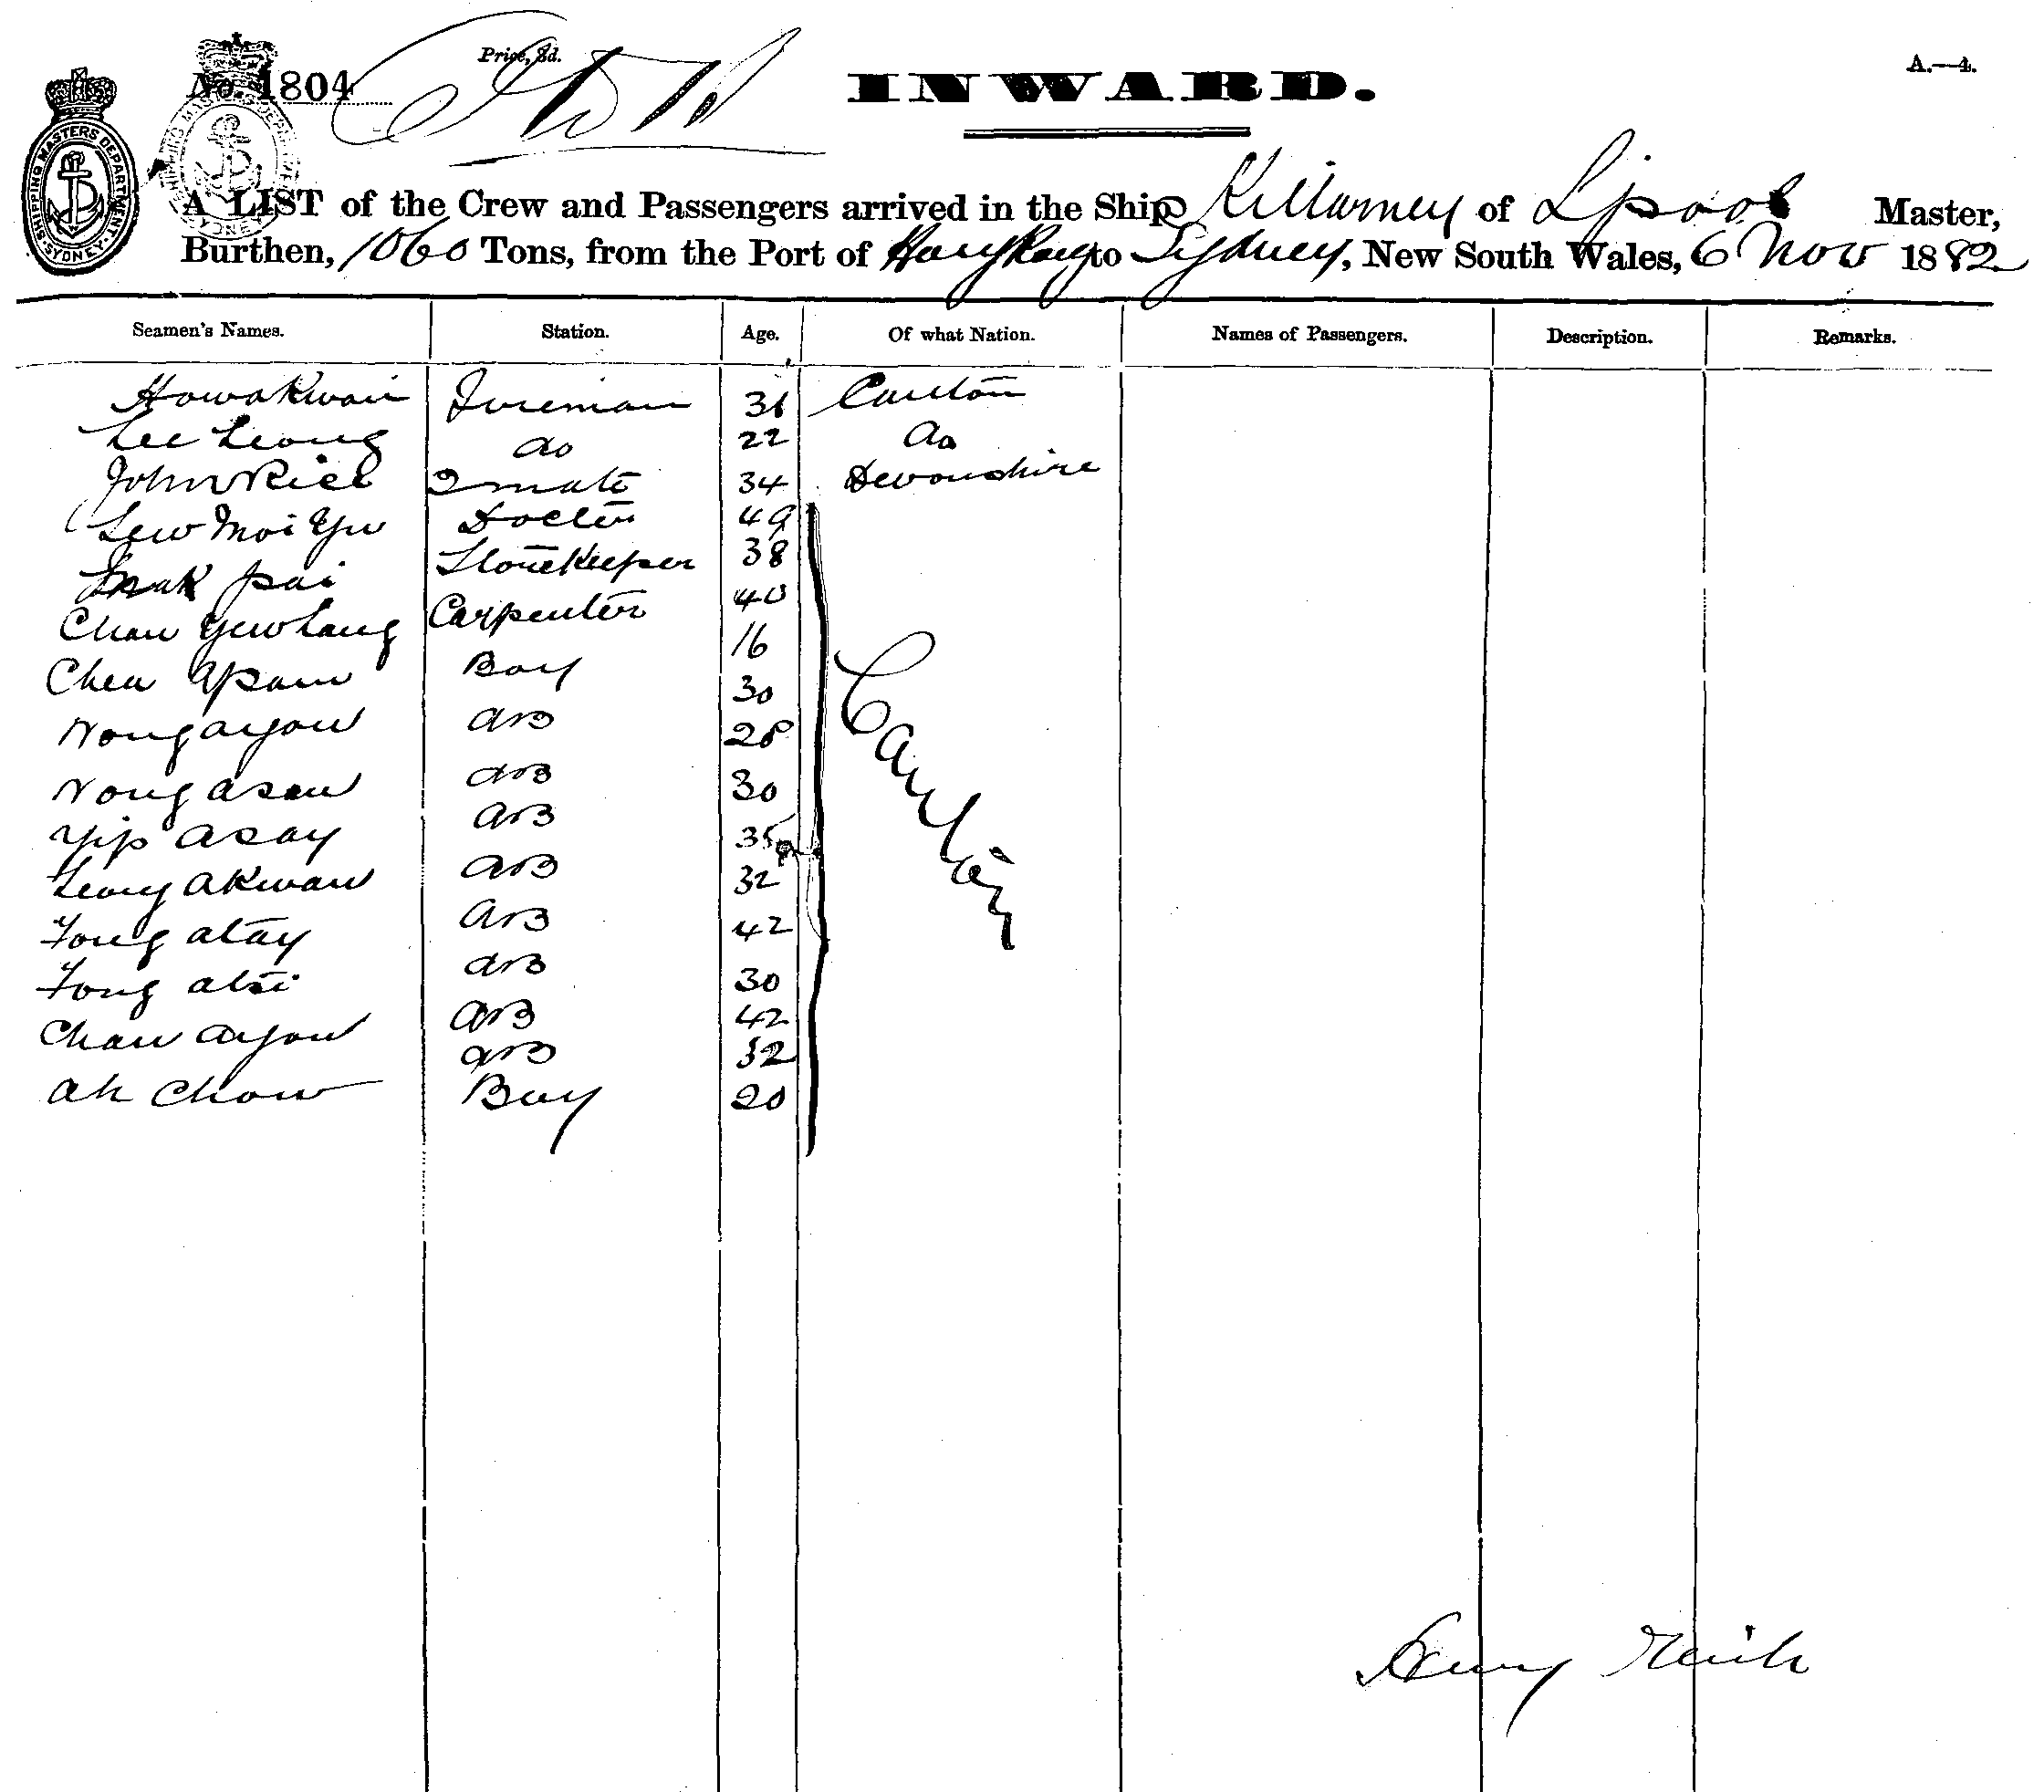 Price, 3d.
A.—4.
No. 1804
INWARD.
SHIPPING MASTERS DEPARTMENT SYDNEY
A LIST of the Crew and Passengers arrived in the Ship Killarney of Lpool Master,
Burthen, 1060 Tons, from the Port of HongKong to Sydney, New South Wales, 6 Nov 1882
Seamen's Names. Station. Age. Of what Nation. Names of Passengers. Description. Remarks.
Howakwai Fireman 31 Canton
Lee Leong do 22 do
John Rice 2 mate 34 Devonshire
Lew Moi Yu Doctor 49
pai Storekeeper 38
Chan Yewlang Carpenter 40
Chea Apam Boy 16
Wong ayow AB 30
Wong asan AB 28
Yip asay AB 30
Leong akwan AB 35
Fong atay AB 32
Fong atai AB 42
Chan ayow AB 30
AB 42
AB 32
Ah Chow Boy 20
Canton
Henry